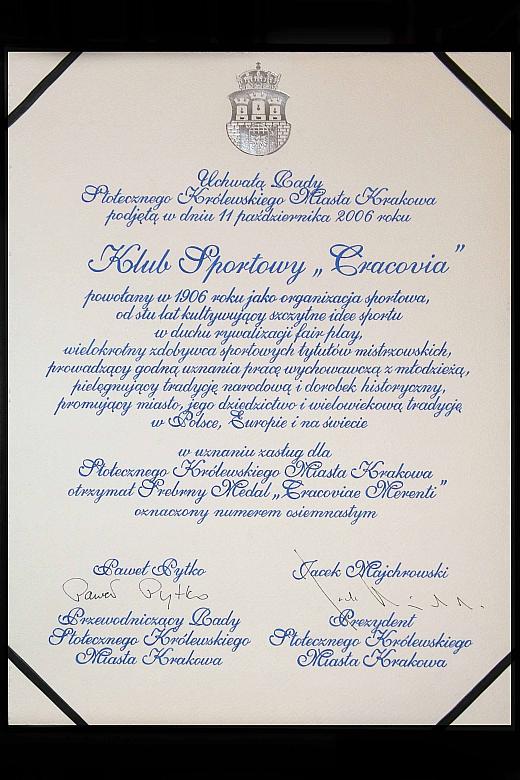 Uchwałą Rady
Stołecznego Królewskiego Miasta Krakowa
podjętą w dniu 11 października 2006 roku
Klub Sportowy „Cracovia”
powołany w 1906 roku jako organizacja sportowa,
od stu lat kultywujący szczytne idee sportu
w duchu rywalizacji fair play,
wielokrotny zdobywca sportowych tytułów mistrzowskich,
prowadzący godną uznania pracę wychowawczą z młodzieżą,
pielęgnujący tradycję narodową i dorobek historyczny,
promujący miasto, jego dziedzictwo i wielowiekową tradycję
w Polsce, Europie i na świecie
w uznaniu zasług dla
Stołecznego Królewskiego Miasta Krakowa
otrzymał Srebrny Medal „Cracoviae Merenti”
oznaczony numerem osiemnastym
Paweł Pytko
Jacek Majchrowski
Paweł Pytko
Przewodniczący Rady
Stołecznego Królewskiego
Miasta Krakowa
Prezydent
Stołecznego Królewskiego
Miasta Krakowa